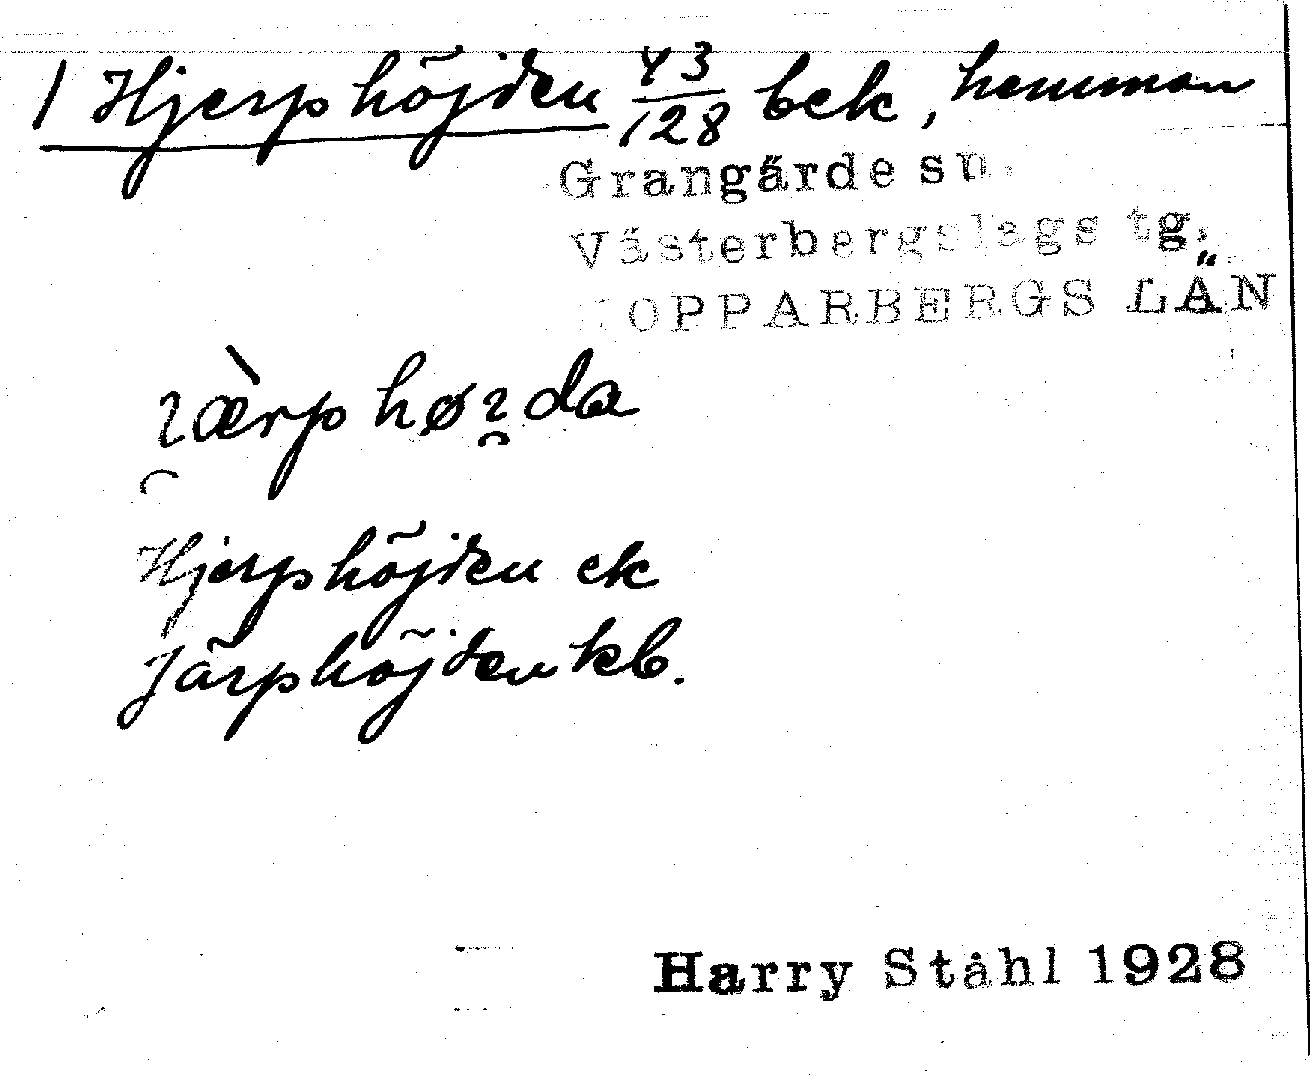 1 Hjerphöjden 43/128 bek, hemman
Grangärde sn.
Västerbergslags tg.
OPPARBERGS LÄN
ɿæ̀rp høɿda
Hjerphöjden ek
Järphöjden kb.
Harry Ståhl 1928